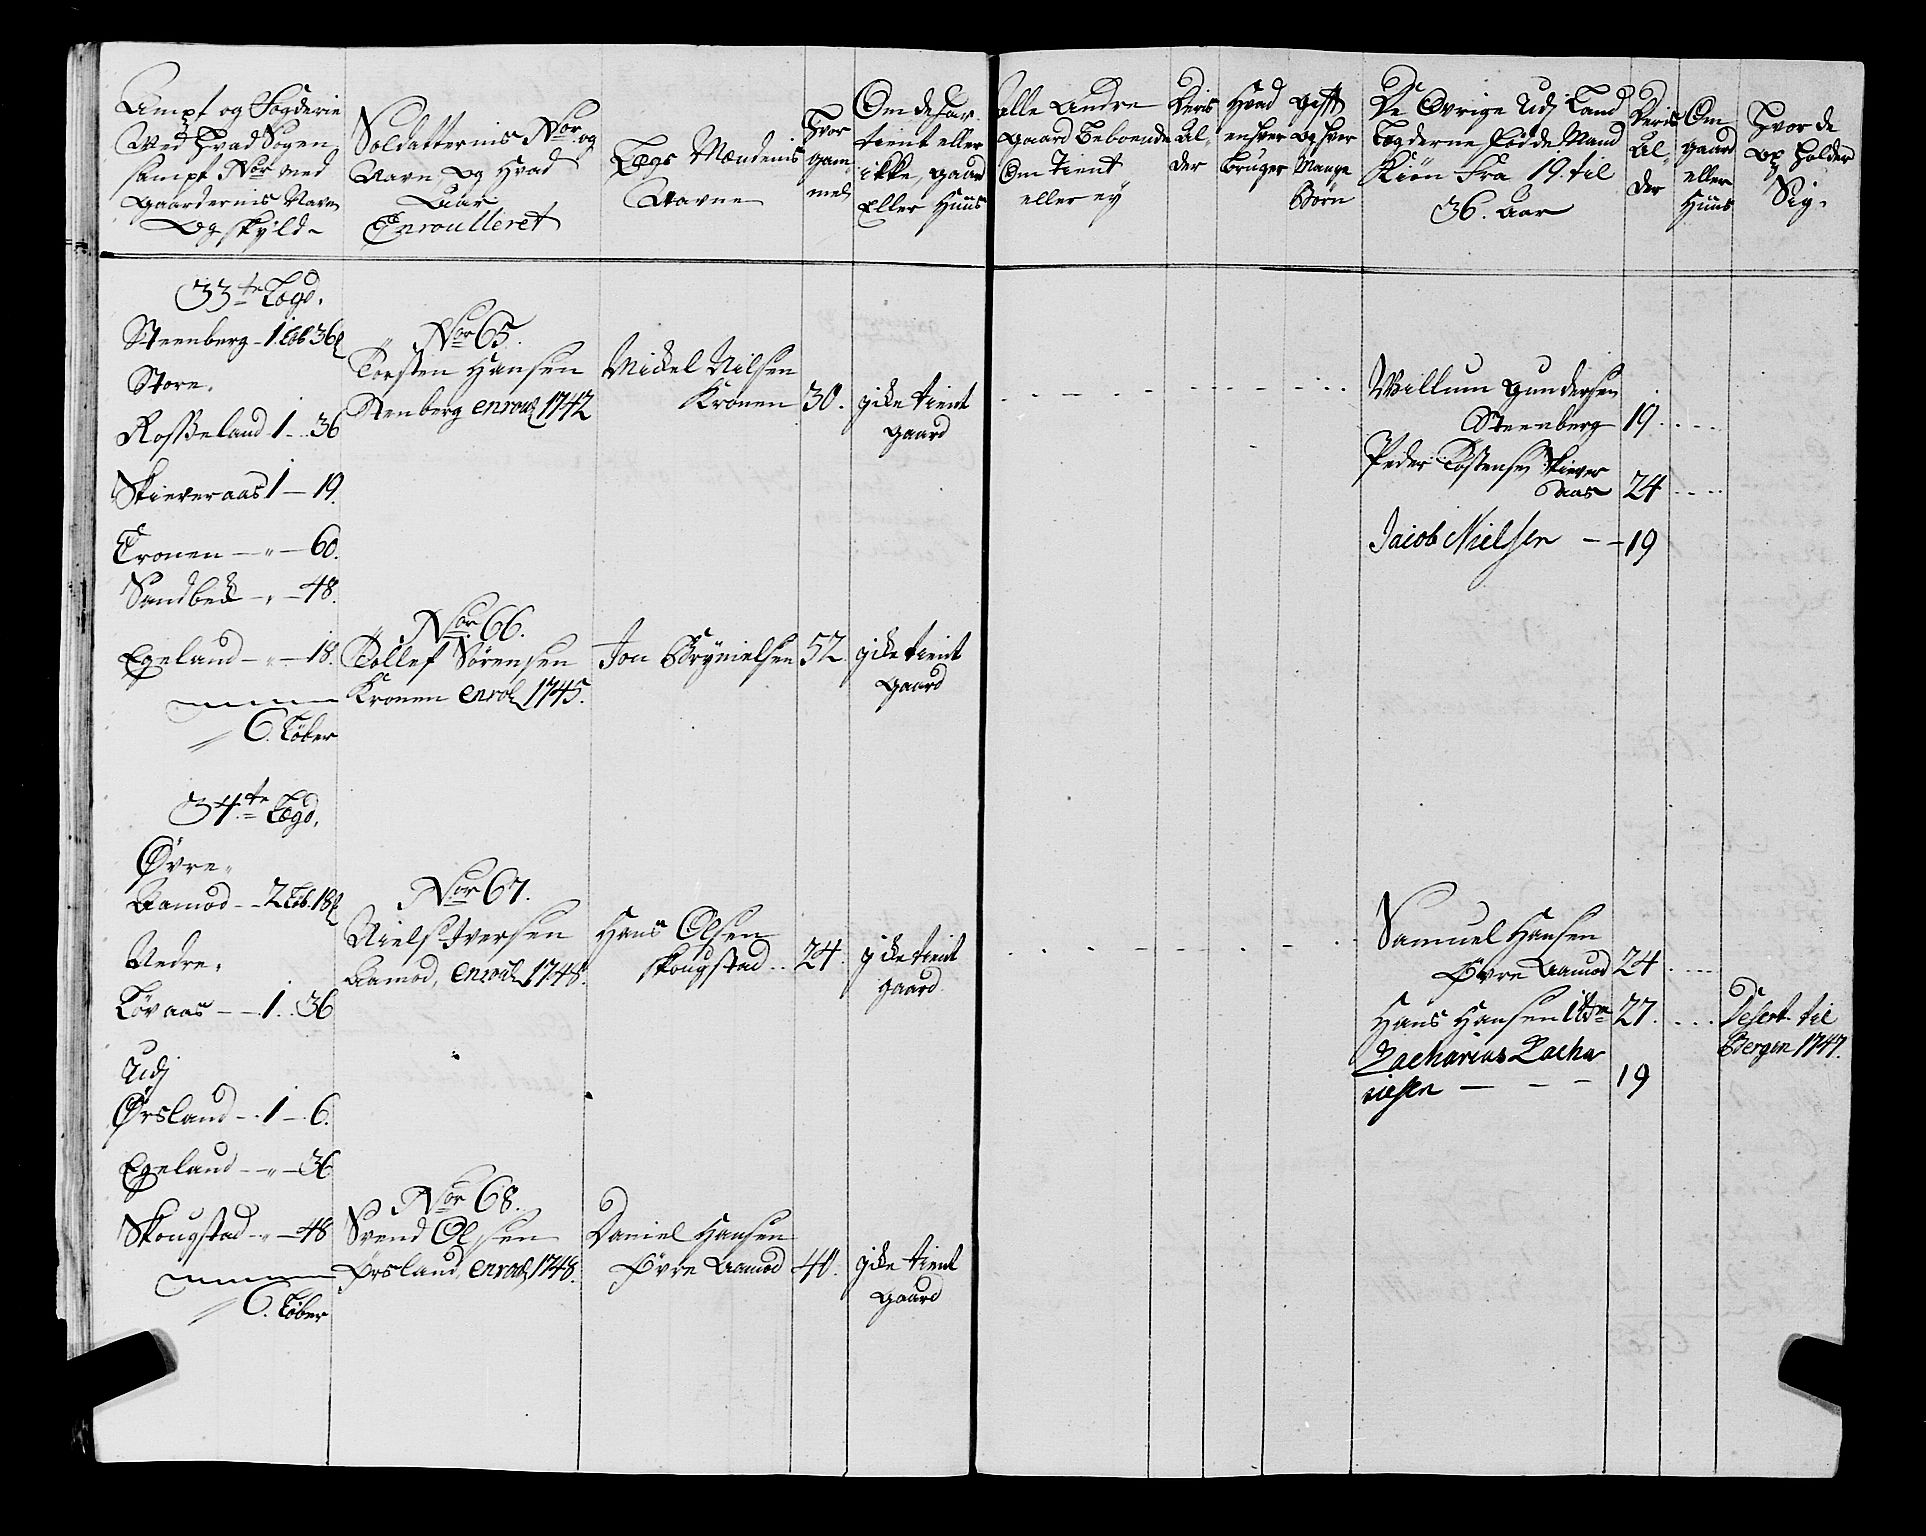 Ampt og Fogderie
Med Hvad Sogen
sampt Nor med
Gaardernis Navn
Og Skyld
Soldatternis Nor. og
Navn og hvad
Aar
Enroulleret
Lægs Mændenis
Navne
Hvor
gam-
mel
Om de har
tient eller
ikke, gaard
Eller Huus
alle andre
gaard beboende
Om tient
eller ey
Deris
Al-
der
Hvad
enhver
bruger
gift
og hver
Mange
Børn
De Øvrige Udj Land
Lægderne fødde Mand
Kiøn Fra 19. til
36. Aar
Deris
Al-
der
Om
gaard
eller
Huus
Hvor de
op holder
Sig.
33te Lægd.
Steenberg - 1 Løb 36
Store.
Rosseland 1 .. 36
Skieveraas 1 — 19.
Cronen — „ — 60.
Sandbeck — „ — 48.
Egeland — „ — 18.
6. Løber
Nor 65.
Torsten Hansen
Stenberg enroul 1742
Mickel Nilsen
Kronen
30.
icke tient
gaard
Willum Gundersen
Steenberg 19.
Peder Tostensen Skiever
aas 24
Jacob Nielsen - - 19
Nor 66.
Tollef Sørensen
Kronen enrol 1745.
Jon Brynielsen 52.
icke tient
gaard
34te Lægd.
Øvre.
Aamod - - 2 Løb. 18
Nedre.
Løvaas - - 1 .. 36
Udj
Ørsland - . 1 - . 6.
Egeland - „ - 36
Skougstad - „ - 48
6. Løber
Nor 67.
Niels Iversen
Aamod, enrol 1748.
Hans Olsen
Skougstad .. 24.
icke tient
gaard
Samuel Hansen
Øvre Aamod 24
Hans Hansen ibm 27.
Desert. til
Bergen 1747.
Zacharias Zacha
riesen — - - 19
Nor 68.
Svend Olsen
Ørsland, enrol 1748.
Daniel Hansen
Øvre Aamod 40.
icke tient
gaard